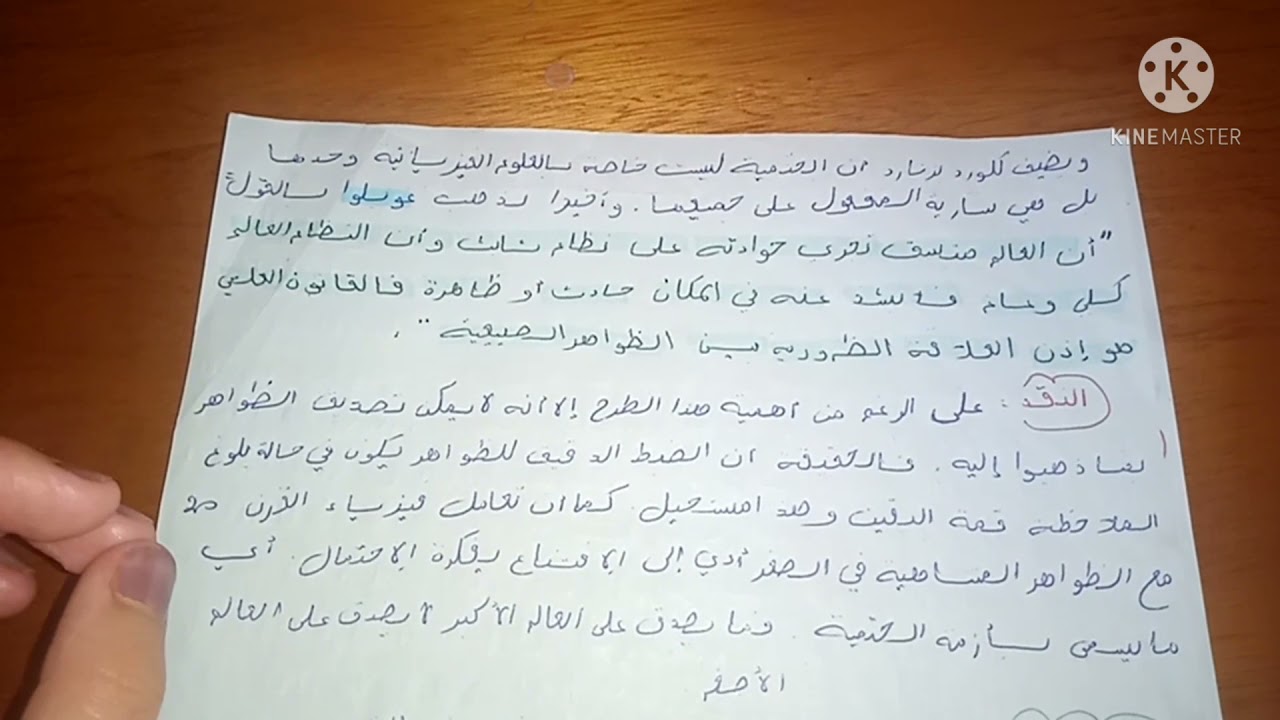 KINEMASTER
ويضيف كلورد برنارد أن الحتمية ليست خاصة بالعلوم الفيزيائية وحدها
بل هي سارية المفعول على جميعها. وأخيرا يذهب غوبلوا بالقول:
"أن العالم متسق تجري حوادثه على نظام ثابت وأن النظام العالم
كلي وعام فلا يشذ عنه في المكان حادث أو ظاهرة فالقانون العلمي
هو إذن العلاقة الضرورية بين الظواهر الطبيعية".
النقد: على الرغم من أهمية هذا الطرح إلا أنه لا يمكن تصديق الظواهر
لما ذهبوا إليه. فالحقيقة أن الضبط الدقيق للظواهر يكون في حالة بلوغ
الملاحظة قمة الدقة وهذا مستحيل. كما أن تعامل فيزياء القرن 20
مع الظواهر المتناهية في الصغر أدي إلى الاقتناع بفكرة الاحتمال. أي
ما يسمى بأزمة الحتمية. فما يصدق على العالم الأكبر لا يصدق على العالم
الأصغر